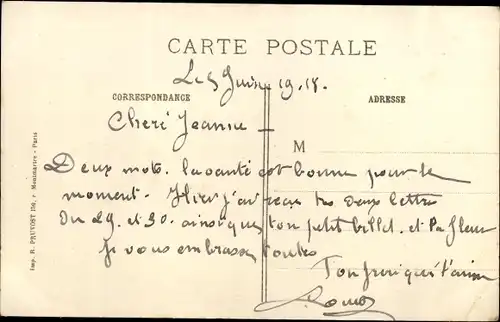 CARTE POSTALE
Le 5 Juin 1918.
CORRESPONDANCE
ADRESSE
Cheré Jeanne
M
Deux mots. la santé est bonne pour le
moment. Hier j'ai recu tes deux lettre
du 29 et 30. ainsi que ton petit billet. et ta fleur
je vous embrasse toutes
Ton qui t'aime
Imp. R. PRUVOST 159, r. Montmartre - Paris